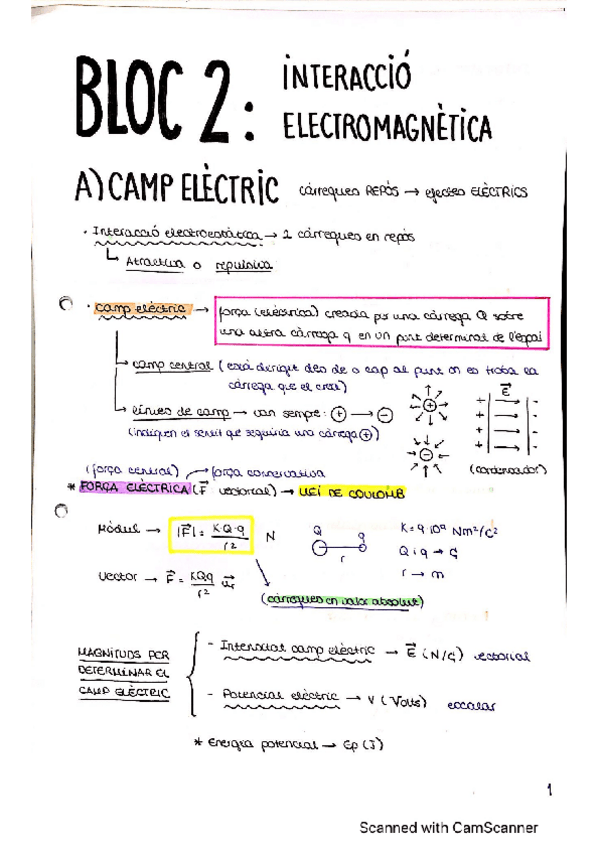 BLOC 2: INTERACCIÓ ELECTROMAGNÈTICA
A) CAMP ELÈCTRIC càrregues REPÒS → efectes ELÈCTRICS
· Interacció electroestàtica → 2 càrregues en repòs
↳ Atractiva o repulsiva
· camp elèctric → força (elèctrica) creada per una càrrega Q sobre
una altra càrrega q en un punt determinat de l'espai
→ camp central (està dirigit des de o cap al punt on es troba la
càrrega que el crea)
→ línies de camp → van sempre: + → -
(indiquen el sentit que seguiria una càrrega +)
E
(condensador)
(força central) → força conservativa
* FORÇA ELÈCTRICA (F vectorial) → LLEI DE COULOMB
Mòdul → |F| = K·Q·q / r² N
Q q
r
K = 9·10⁹ Nm²/C²
Q i q → C
r → m
Vector → F = KQq / r² ur
(càrregues en valor absolut)
MAGNITUDS PER
DETERMINAR EL
CAMP ELÈCTRIC
- Intensitat camp elèctric → E (N/C) vectorial
- Potencial elèctric → V (Volts) escalar
* Energia potencial → Ep (J)
1
Scanned with CamScanner